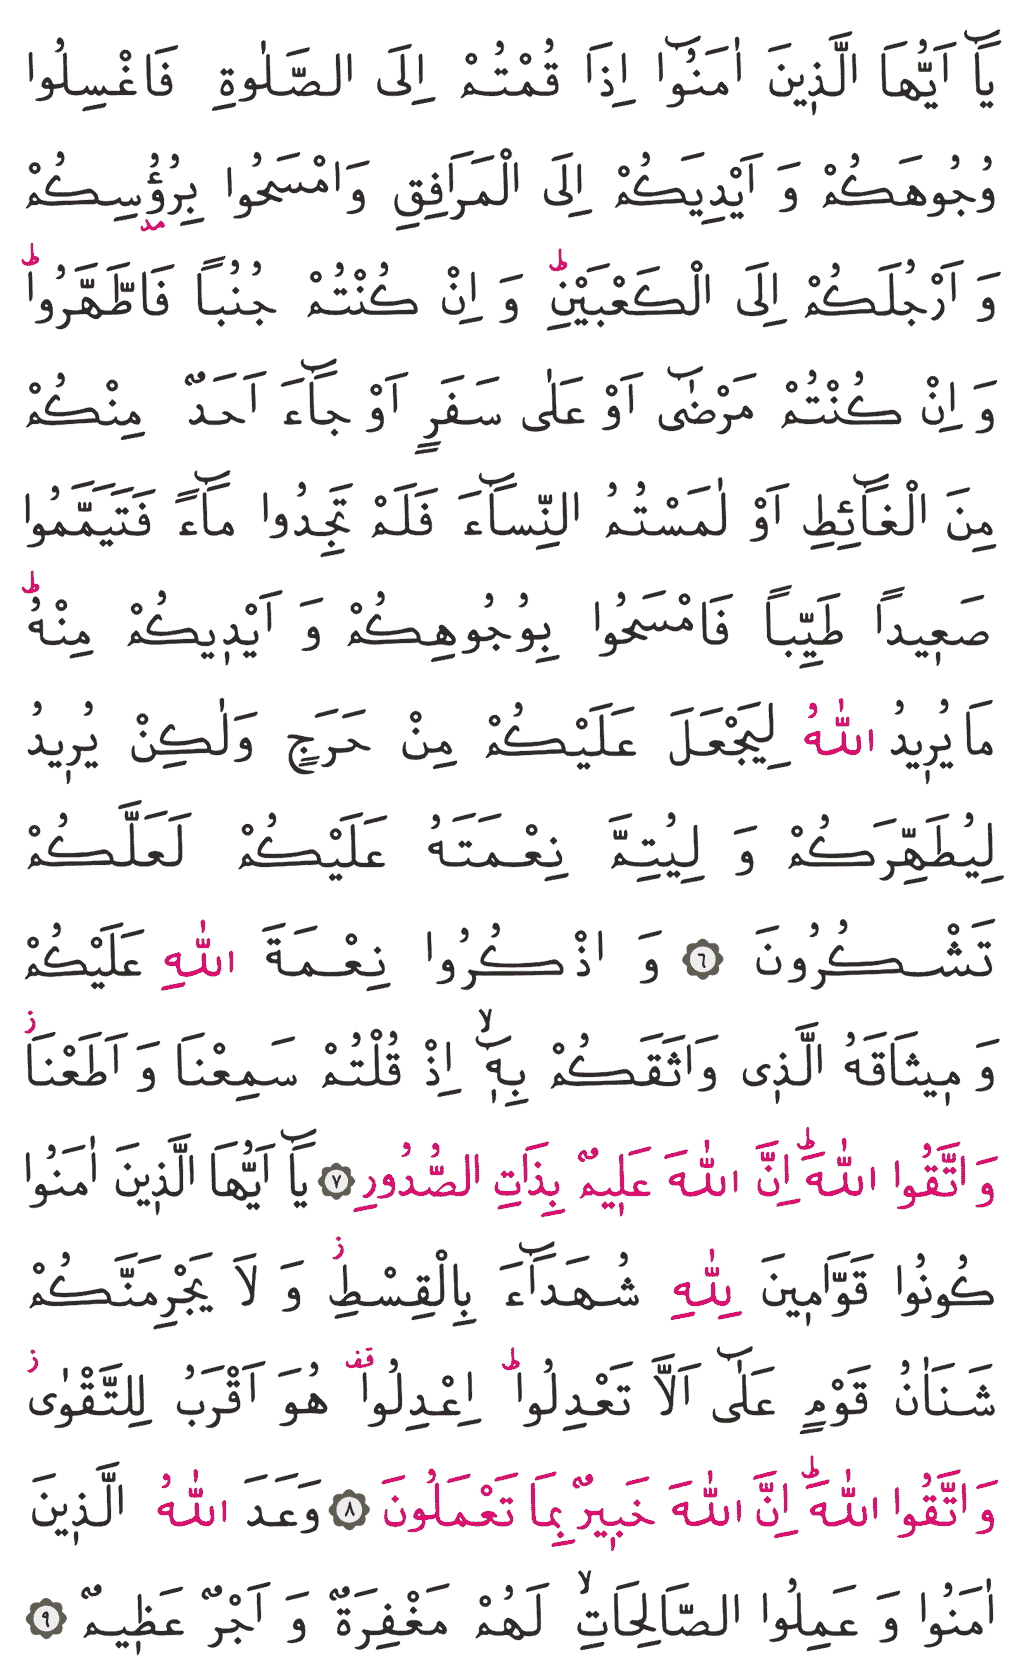 يَآ اَيُّهَا الَّذٖينَ اٰمَنُٓوا اِذَا قُمْتُمْ اِلَى الصَّلٰوةِ فَاغْسِلُوا
وُجُوهَكُمْ وَ اَيْدِيَكُمْ اِلَى الْمَرَافِقِ وَامْسَحُوا بِرُؤُسِكُمْ
وَ اَرْجُلَكُمْ اِلَى الْكَعْبَيْنِؕ وَ اِنْ كُنْتُمْ جُنُبًا فَاطَّهَّرُواؕ
وَ اِنْ كُنْتُمْ مَرْضٰٓى اَوْ عَلٰى سَفَرٍ اَوْ جَٓاءَ اَحَدٌ مِنْكُمْ
مِنَ الْغَٓائِطِ اَوْ لٰمَسْتُمُ النِّسَٓاءَ فَلَمْ تَجِدُوا مَٓاءً فَتَيَمَّمُوا
صَعٖيدًا طَيِّبًا فَامْسَحُوا بِوُجُوهِكُمْ وَ اَيْدٖيكُمْ مِنْهُؕ
مَا يُرٖيدُ اللّٰهُ لِيَجْعَلَ عَلَيْكُمْ مِنْ حَرَجٍ وَلٰكِنْ يُرٖيدُ
لِيُطَهِّرَكُمْ وَ لِيُتِمَّ نِعْمَتَهُ عَلَيْكُمْ لَعَلَّكُمْ
تَشْكُرُونَ ٦ وَ اذْكُرُوا نِعْمَةَ اللّٰهِ عَلَيْكُمْ
وَ مٖيثَاقَهُ الَّذٖى وَاثَقَكُمْ بِهٖٓۙ اِذْ قُلْتُمْ سَمِعْنَا وَ اَطَعْنَاؗ
وَ اتَّقُوا اللّٰهَؕ اِنَّ اللّٰهَ عَلٖيمٌ بِذَاتِ الصُّدُورِ ٧ يَآ اَيُّهَا الَّذٖينَ اٰمَنُوا
كُونُوا قَوَّامٖينَ لِلّٰهِ شُهَدَٓاءَ بِالْقِسْطِؗ وَ لَا يَجْرِمَنَّكُمْ
شَنَاٰنُ قَوْمٍ عَلٰٓى اَلَّا تَعْدِلُواؕ اِعْدِلُواࣞ هُوَ اَقْرَبُ لِلتَّقْوٰىؗ
وَ اتَّقُوا اللّٰهَؕ اِنَّ اللّٰهَ خَبٖيرٌ بِمَا تَعْمَلُونَ ٨ وَعَدَ اللّٰهُ الَّذٖينَ
اٰمَنُوا وَ عَمِلُوا الصَّالِحَاتِۙ لَهُمْ مَغْفِرَةٌ وَ اَجْرٌ عَظٖيمٌ ٩